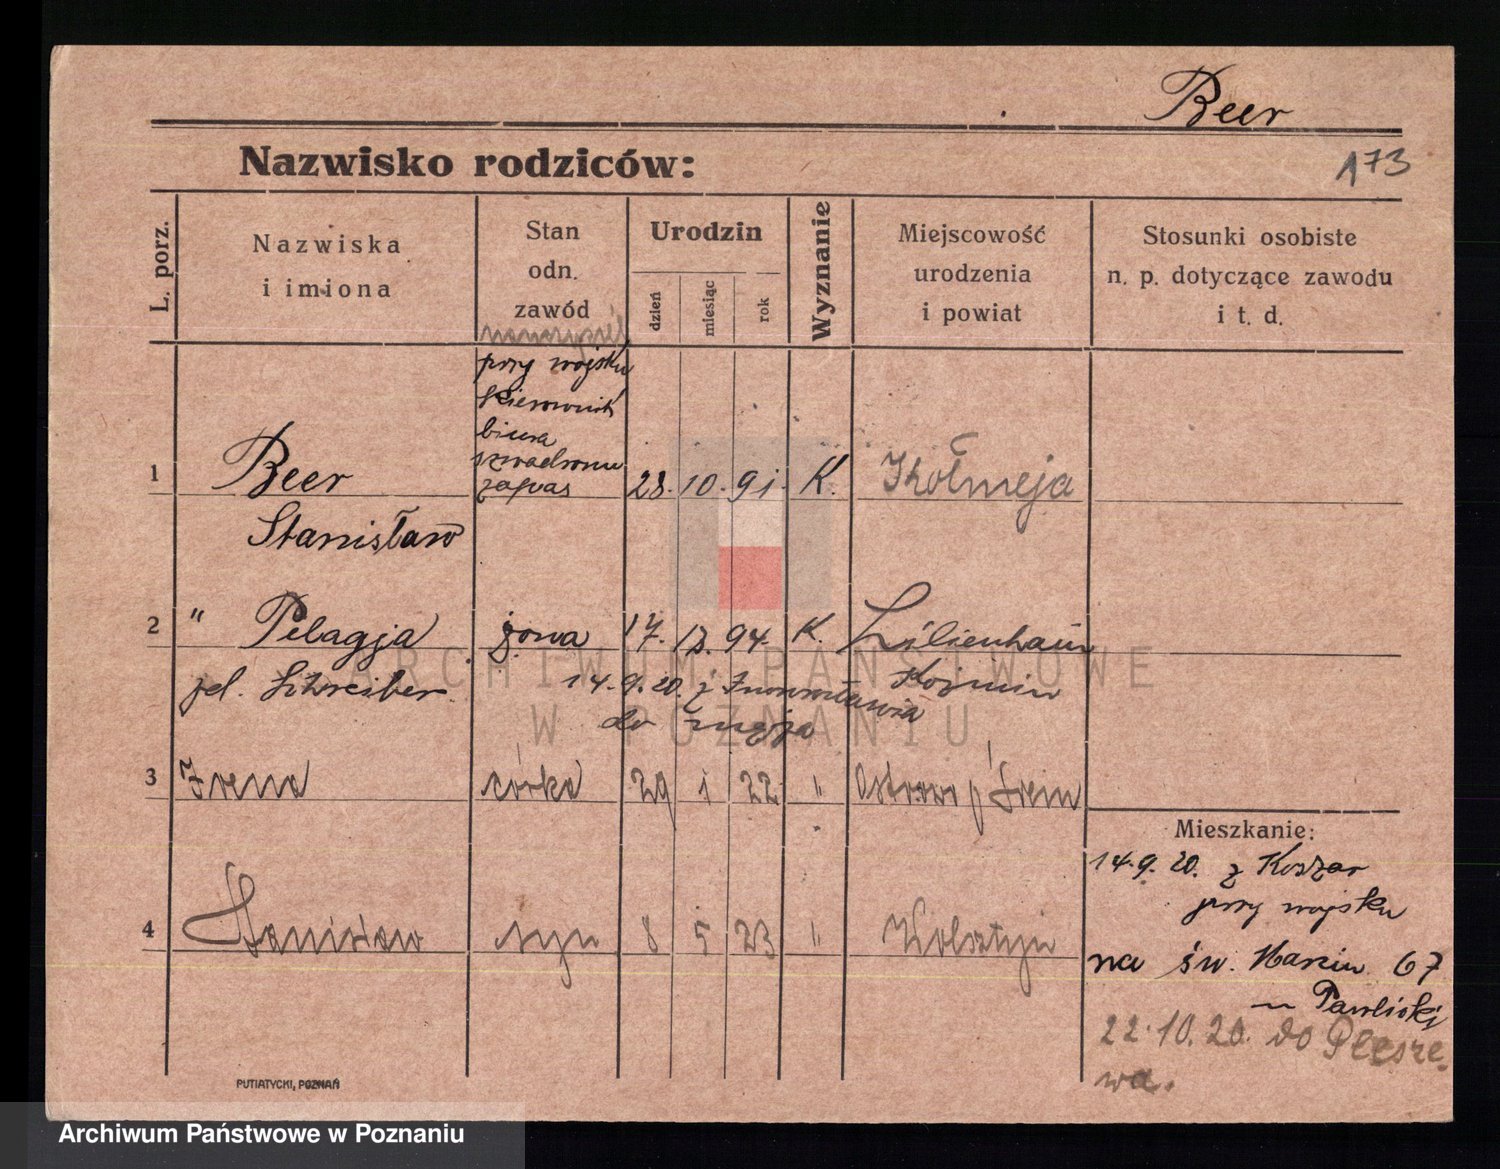 Beer
Nazwisko rodziców:
173
L. porz.
Nazwiska
i imiona
Stan
odn.
zawód
Urodzin
dzień
miesiąc
rok
Wyznanie
Miejscowość
urodzenia
i powiat
Stosunki osobiste
n. p. dotyczące zawodu
i t. d.
przy wojsku
kierownik
biura
szwadronu
zapas
1
Beer
28. 10. 91. K. Kołmeja
Stanisław
2 " Pelagja żona 17. 12. 94. K. Lilienhain
Koźmin
14.9.20. z Inowrocławia
do męża
3 Irena córka 29 1 22 " Ostrowo p/ Śrem
Mieszkanie:
14.9.20. z Koszar
przy wojsku
4 Stanisław syn 8 5 23 " Wolsztyn
na św. Marcin 67
Pawlicki
22.10.20. do Plesze-
wa.
PUTIATYCKI, POZNAŃ
ARCHIWUM PAŃSTWOWE
W POZNANIU
Archiwum Państwowe w Poznaniu